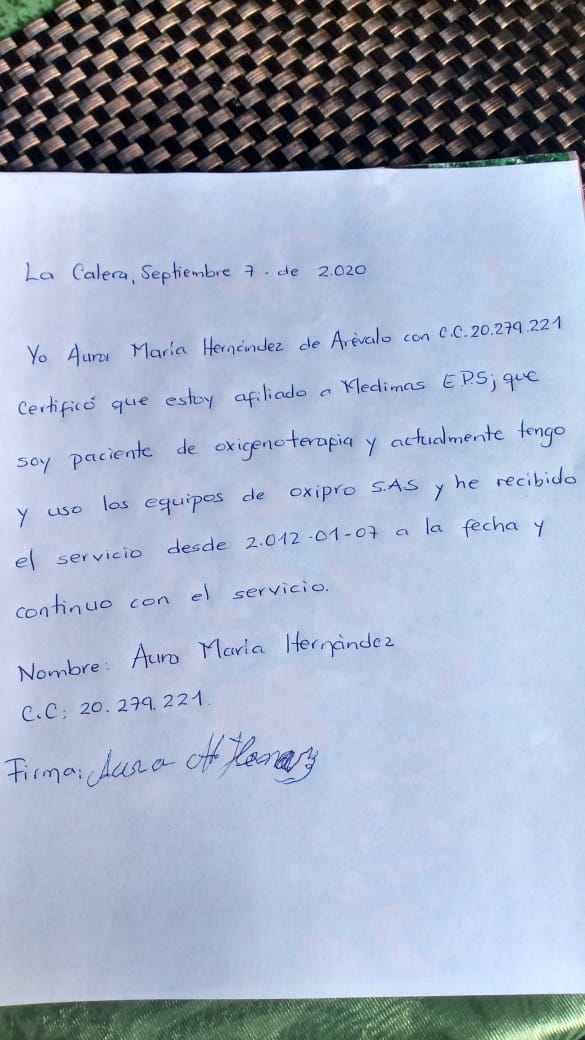 La Calera, Septiembre 7. de 2.020
Yo Aura María Hernández de Arévalo con C.C. 20.279.221
Certificó que estoy afiliado a Medimas EPS; que
soy paciente de oxigenoterapia y actualmente tengo
y uso los equipos de oxipro S.A.S y he recibido
el servicio desde 2.012-01-07 a la fecha y
continuo con el servicio.
Nombre: Aura María Hernández
C.C: 20.279.221.
Firma: Aura